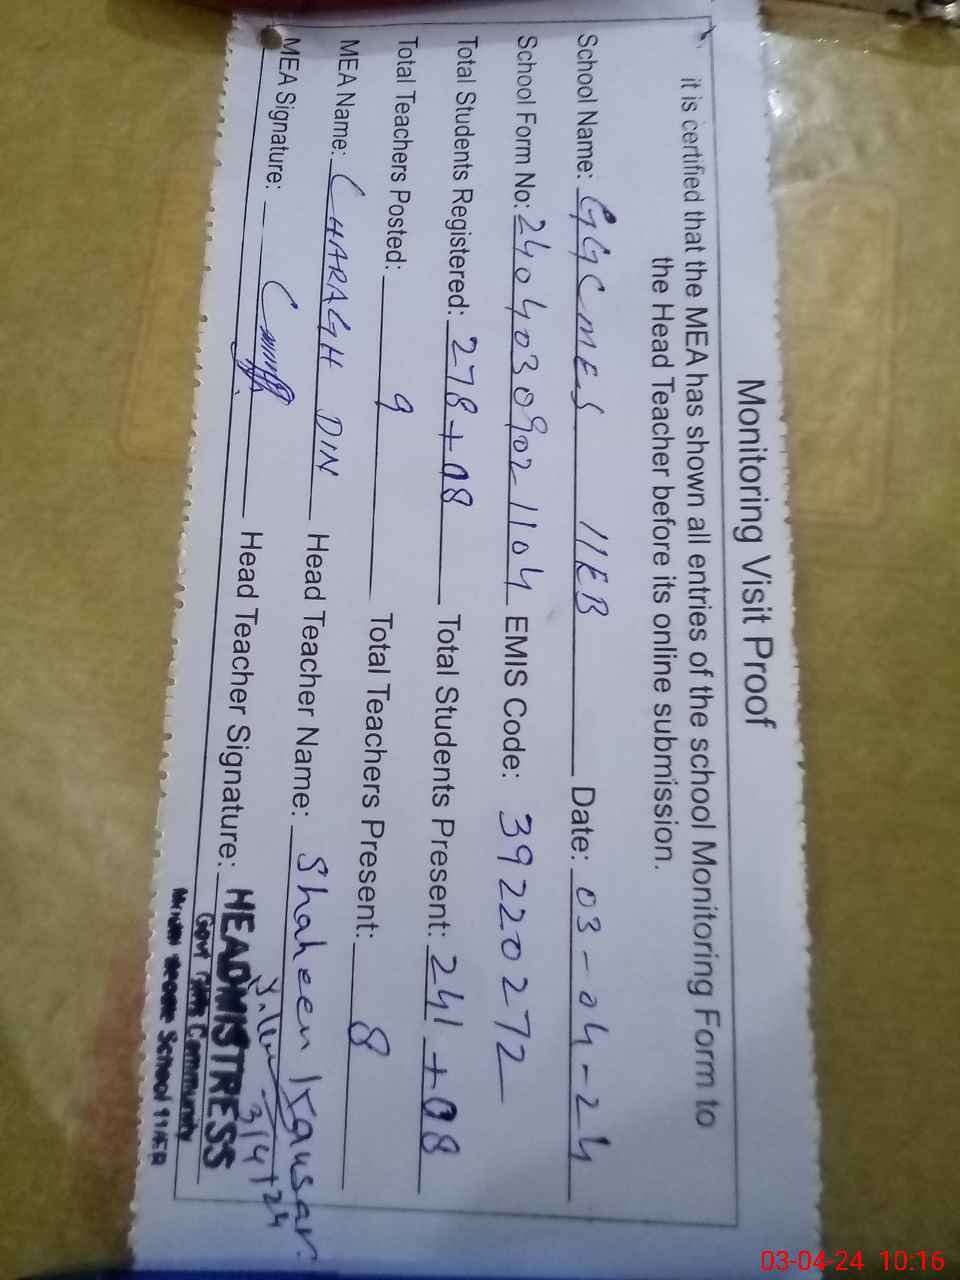 Monitoring Visit Proof
it is certified that the MEA has shown all entries of the school Monitoring Form to
the Head Teacher before its online submission.
School Name: GGCMES 11EB Date: 03-04-24
School Form No: 2404030902-1104 EMIS Code: 39220272
Total Students Registered: 278+08 Total Students Present: 241+08
Total Teachers Posted: 9 Total Teachers Present: 8
MEA Name: CHARAGH DIN Head Teacher Name: Shaheen Kausar.
MEA Signature: Head Teacher Signature: 3/4/24
HEADMISTRESS
Govt Girls Community
School 11/EB
03-04-24 10:16